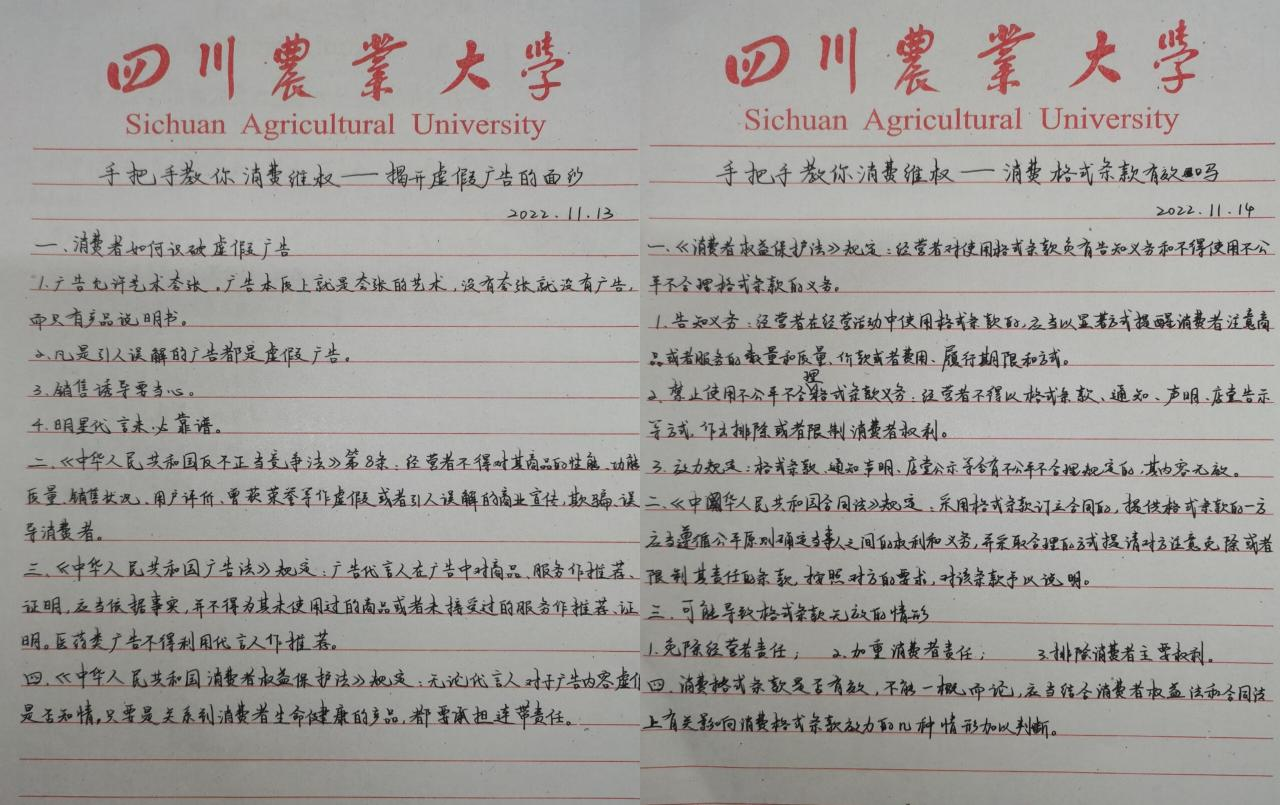 四川農業大學
Sichuan Agricultural University
手把手教你消费维权——揭开虚假广告的面纱
2022.11.13
一、消费者如何识破虚假广告
1.广告允许艺术夸张。广告本质上就是夸张的艺术，没有夸张就没有广告，
而只有产品说明书。
2.凡是引人误解的广告都是虚假广告。
3.销售诱导要当心。
4.明星代言未必靠谱。
二、《中华人民共和国反不正当竞争法》第8条：经营者不得对其商品的性能、功能
质量、销售状况、用户评价、曾获荣誉等作虚假或者引人误解的商业宣传，欺骗、误
导消费者。
三、《中华人民共和国广告法》规定：广告代言人在广告中对商品、服务作推荐、
证明，应当依据事实，并不得为其未使用过的商品或者未接受过的服务作推荐、证
明。医药类广告不得利用代言人作推荐。
四、《中华人民共和国消费者权益保护法》规定：无论代言人对于广告内容虚
是否知情，只要是关系到消费者生命健康的产品，都要承担连带责任。
四川農業大學
Sichuan Agricultural University
手把手教你消费维权——消费格式条款有效吗
2022.11.14
一、《消费者权益保护法》规定：经营者对使用格式条款负有告知义务和不得使用不公
平不合理格式条款的义务。
1.告知义务：经营者在经营活动中使用格式条款的，应当以显著方式提醒消费者注意商
品或者服务的数量和质量、价款或者费用、履行期限和方式。
2.禁止使用不公平不合理格式条款义务：经营者不得以格式条款、通知、声明、店堂告示
等方式，作出排除或者限制消费者权利。
3.效力规定：格式条款、通知声明、店堂公示等含有不公平不合理规定的，其内容无效。
二、《中华人民共和国合同法》规定：采用格式条款订立合同的，提供格式条款的一方
应当遵循公平原则确定当事人之间的权利和义务，并采取合理的方式提请对方注意免除或者
限制其责任的条款，按照对方的要求，对该条款予以说明。
三、可能导致格式条款无效的情形
1.免除经营者责任； 2.加重消费者责任； 3.排除消费者主要权利。
四、消费格式条款是否有效，不能一概而论，应当结合消费者权益法和合同法
上有关影响消费格式条款效力的几种情形加以判断。